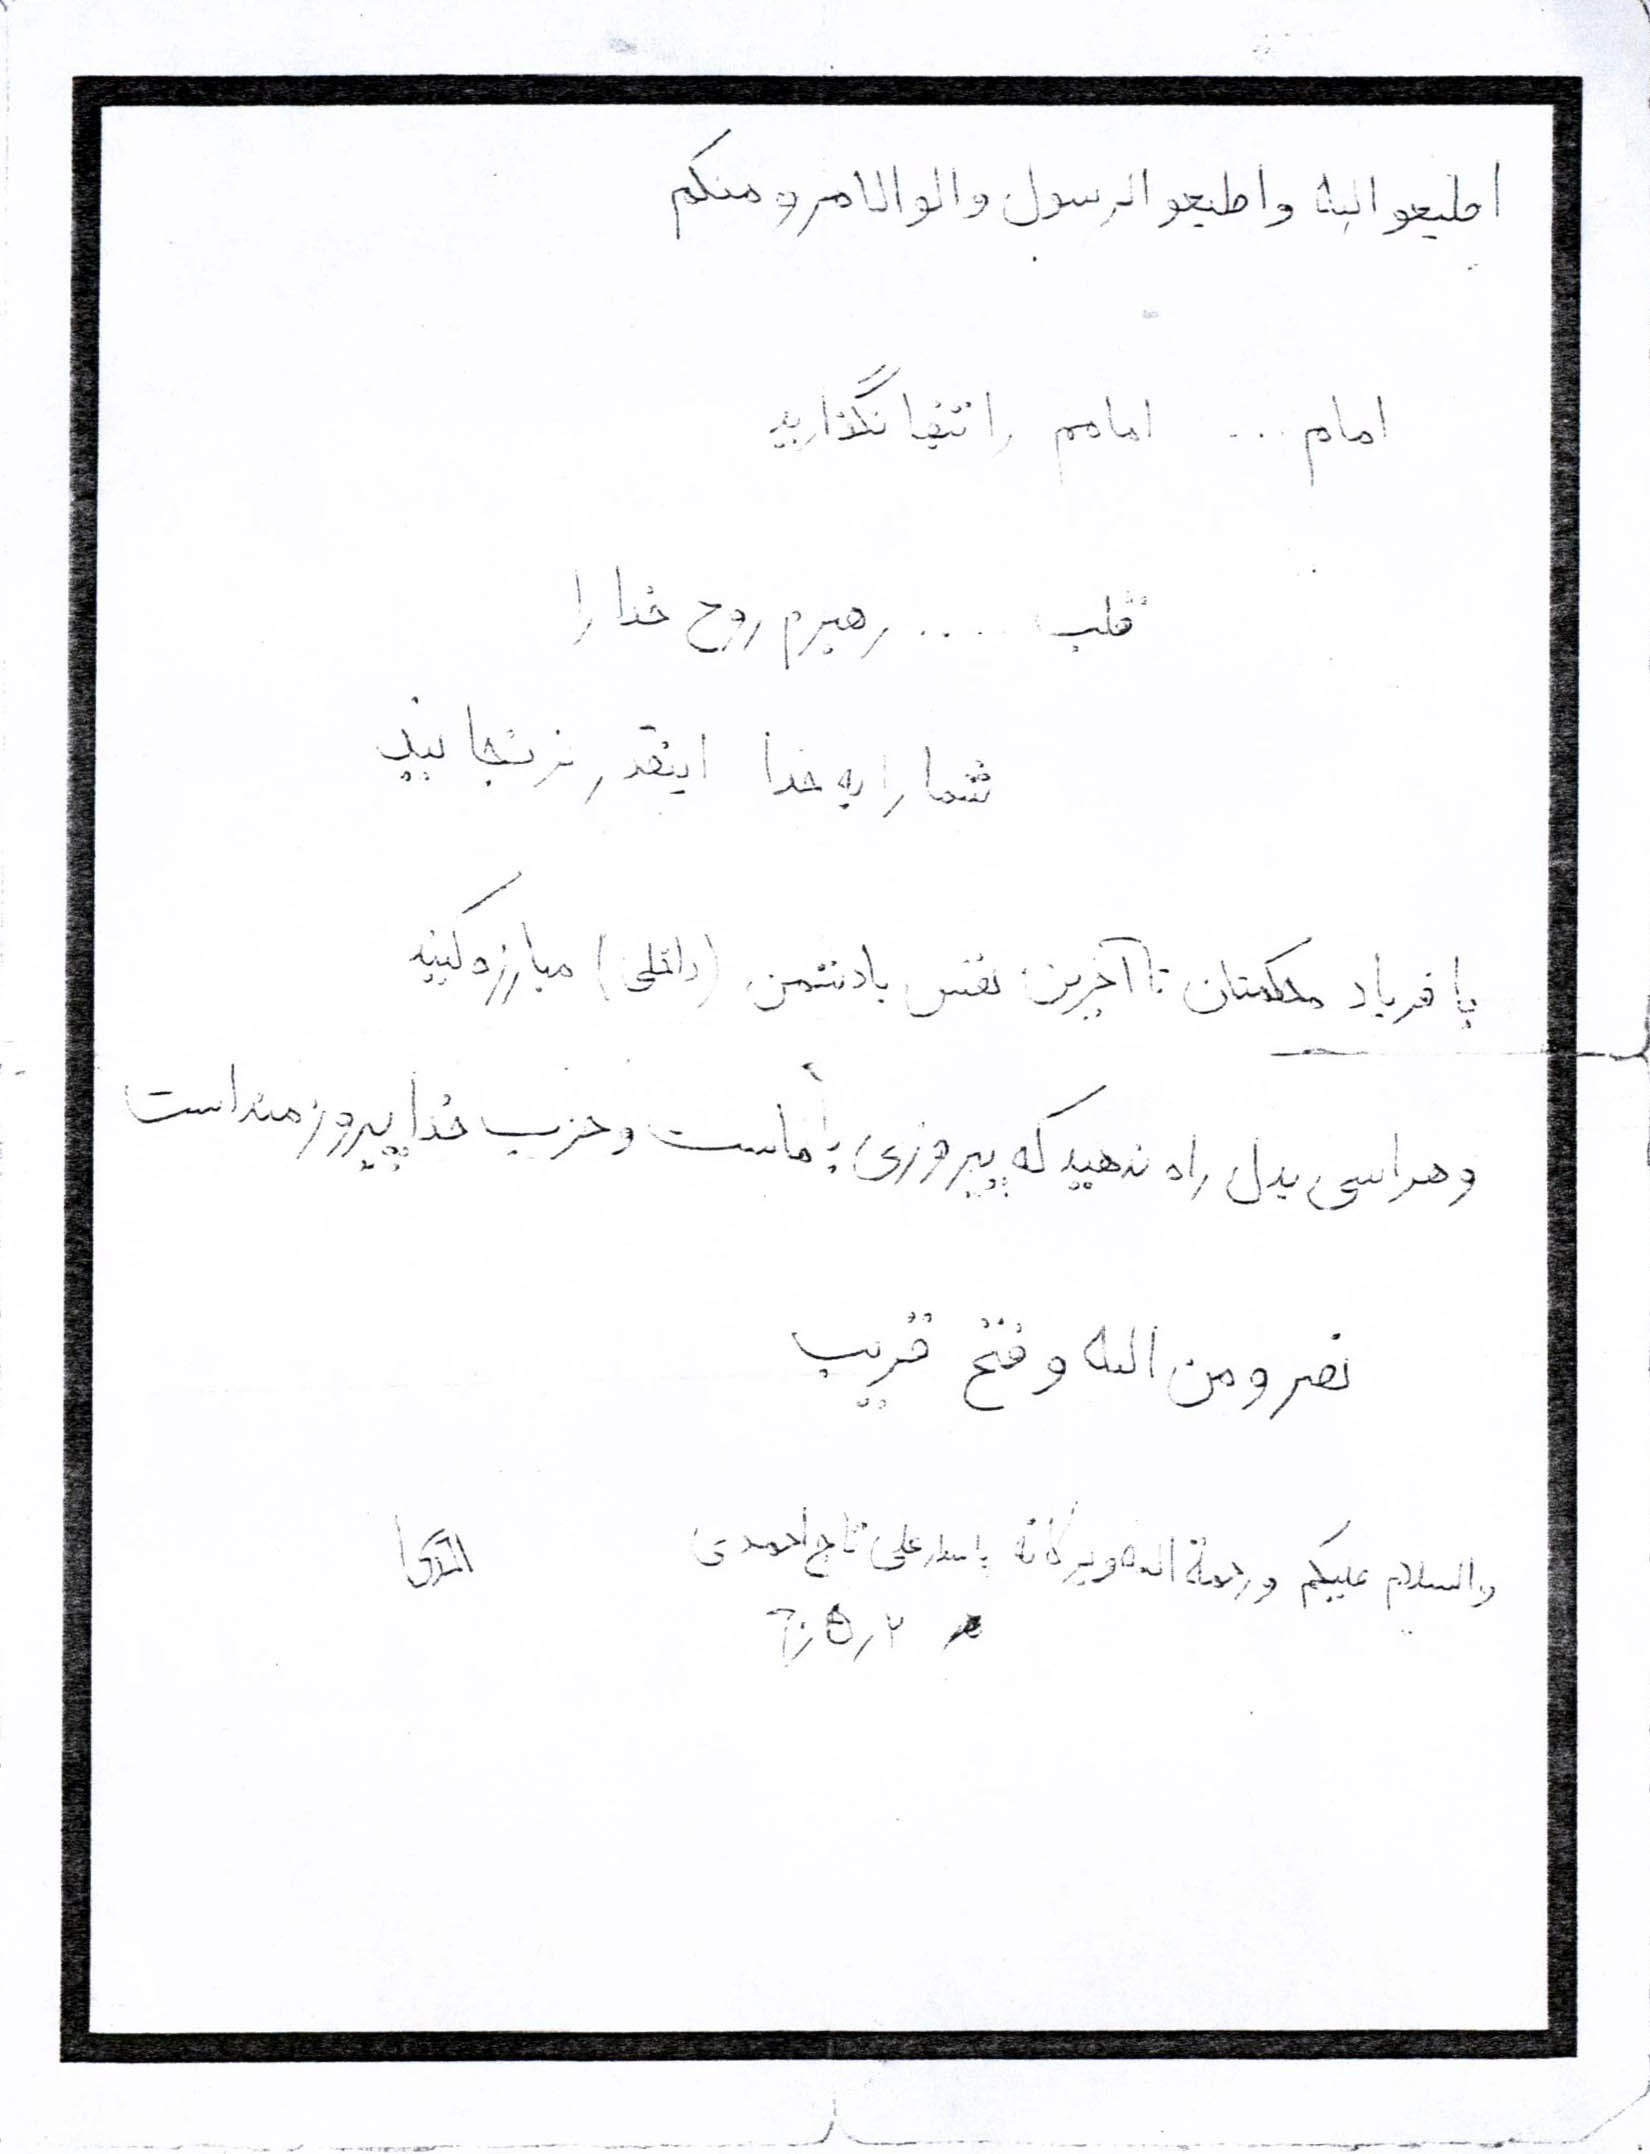 اطیعو الله واطیعو الرسول والوالامرو منکم
امام ... امامم را تنها نگذارید
قلب .... رهبرم روح خدا را
شما را به خدا اینقدر نرنجانید
با فریاد محکمتان تا آخرین نفس بادشمن (داخلی) مبارزه کنید
و هراسی بدل راه ندهید که پیروزی با ماست و حزب خدا پیروزمند است
نصر و من الله و فتح قریب
والسلام علیکم و رحمة الله وبرکاته پاسدار علی تاج احمدی
۶۰٫۵٫۲